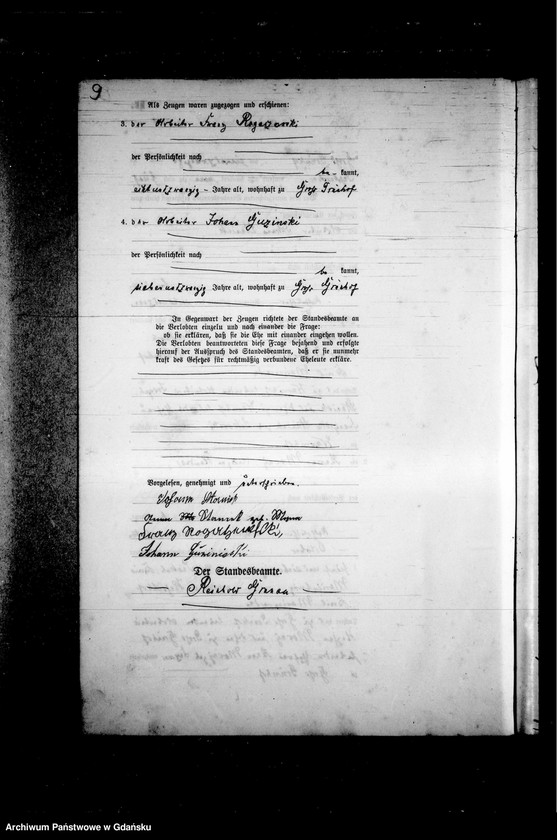 9
Als Zeugen waren zugezogen und erschienen:
3. der Arbeiter Franz
der Persönlichkeit nach
be kannt,
Jahre alt, wohnhaft zu Groß
4. der Arbeiter Johann Guzinski
der Persönlichkeit nach
be kannt,
siebenundzwanzig Jahre alt, wohnhaft zu Groß
In Gegenwart der Zeugen richtete der Standesbeamte an
die Verlobten einzeln und nach einander die Frage:
ob sie erklären, daß sie die Ehe mit einander eingehen wollen.
Die Verlobten beantworteten diese Frage bejahend und erfolgte
hierauf der Ausspruch des Standesbeamten, daß er sie nunmehr
kraft des Gesetzes für rechtmäßig verbundene Eheleute erkläre.
Vorgelesen, genehmigt und unterschrieben.
Johann
geb.
Franz
Johann
Der Standesbeamte.
Archiwum Państwowe w Gdańsku